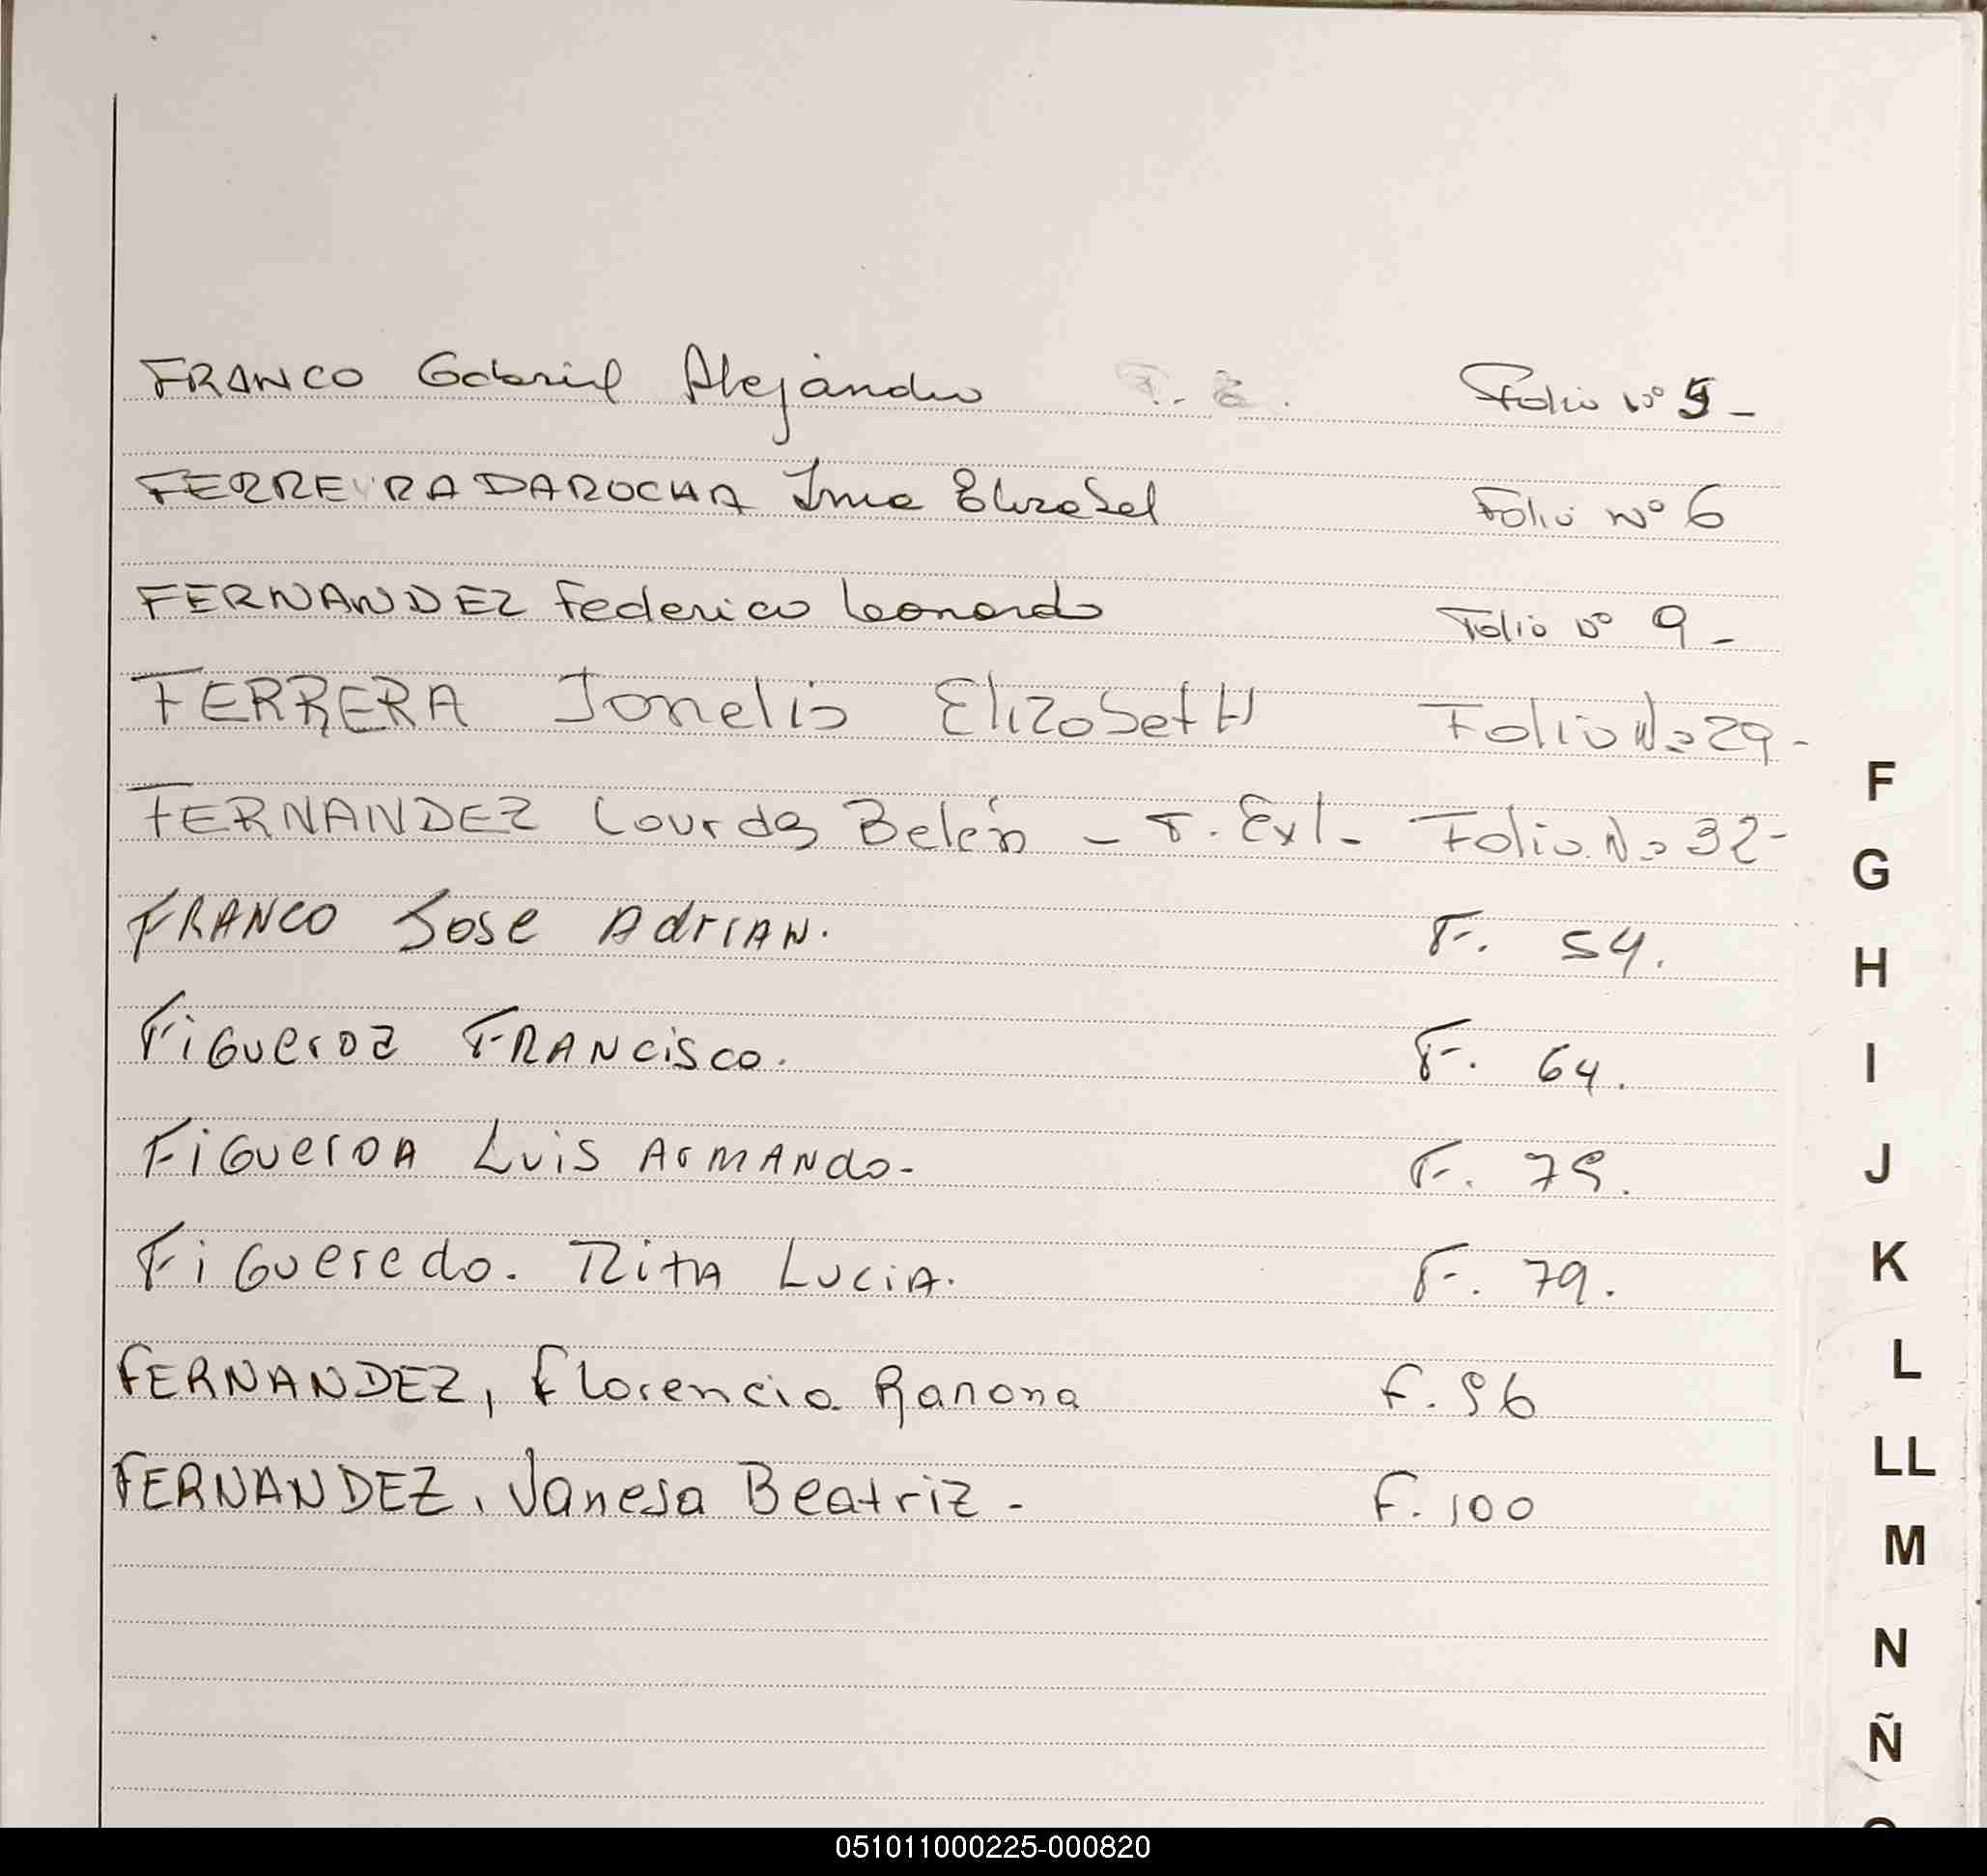 FRANCO Gabriel Alejandro Folio Nº 5-
FERREYRA DAROCHA Irma Elizabel Folio Nº 6
FERNANDEZ Federico Leonardo Folio Nº 9-
FERRERA Jonelis ElizabetH Folio Nº 29-
FERNANDEZ Lourdes Belén - T. Ext- Folio Nº 32-
FRANCO Jose AdriAN. F. 54.
FiGueroa FRANcisco. F. 64.
FiGueroA Luis ArmANdo- F. 79.
FiGueredo. RitA LuciA. F. 79.
FERNANDEZ, Florencia Ramona F. 96
FERNANDEZ, Vanesa Beatriz - F. 100
F
G
H
I
J
K
L
LL
M
N
Ñ
051011000225-000820